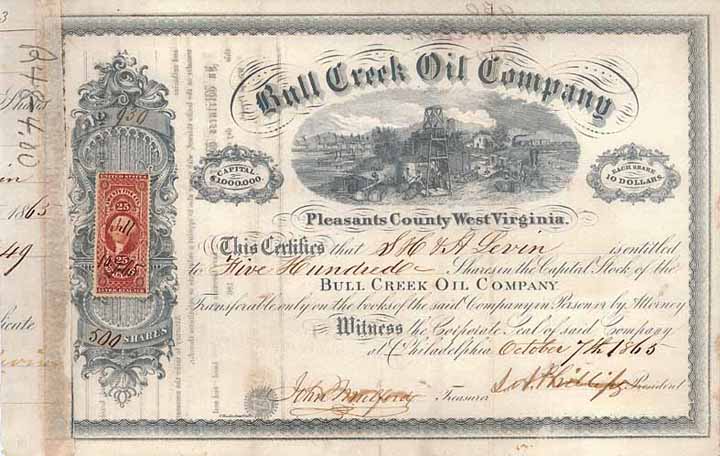 Bull Creek Oil Company
No 930
CAPITAL
$1000.000.
EACH SHARE
10 DOLLARS.
Pleasants County West Virginia.
This Certifies that S H & A Levin is entitled
to Five Hundred Shares in the Capital Stock of the
BULL CREEK OIL COMPANY
Transferable only on the books of the said Company in Person or by Attorney
Witness the Corporate Seal of said Company
at Philadelphia October 7th 1865
Treasurer
President
25
25
500 SHARES
Shares
1865
49